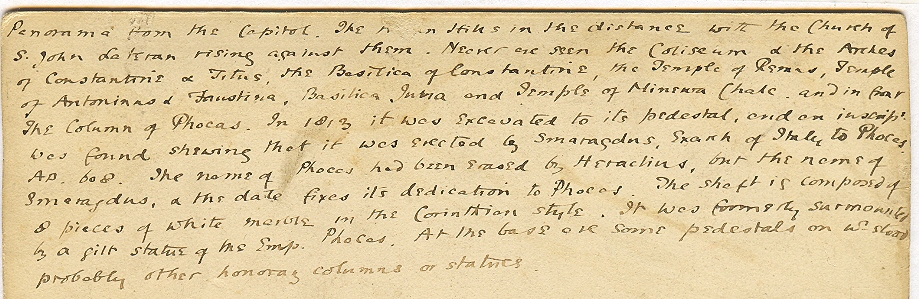 Panorama from the Capitol. The n n Hills in the distance with the Church of
S. John Lateran rising against them. Nearer are seen the Coliseum & the Arches
of Constantine & Titus, the Basilica of Constantine, the Temple of Remus, Temple
of Antoninus & Faustina, Basilica Julia and Temple of Minerva Chalc. and in front
The Column of Phocas. In 1813 it was excavated to its pedestal, and an inscript.
was found shewing that it was erected by Smaragdus, Exarch of Italy to Phocas,
AD. 608. The name of Phocas had been erased by Heraclius, but the name of
Smaragdus, & the date fixes its dedication to Phocas. The shaft is composed of
8 pieces of white marble in the Corinthian style. It was formerly surmounted
by a gilt statue of the Emp. Phocas. At the base are some pedestals on wh stood
probably other honorary columns or statues.